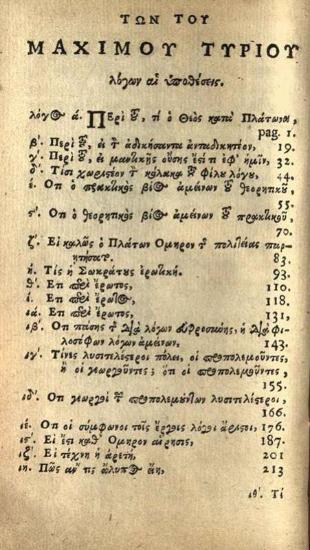 ΤΩΝ ΤΟΥ
ΜΑΞΙΜΟΥ ΤΥΡΙΟΥ
λόγων αἱ ὑποθέσεις.
λόγος ά. Περὶ τοῦ, τί ὁ Θεὸς κατὰ Πλάτωνα,
pag. 1.
β΄. Περὶ τοῦ, εἰ τὸν ἀδικήσαντα ἀνταδικητέον, 19.
γ΄. Περὶ τοῦ, εἰ μαντικῆς οὔσης ἔστι τι ἐφ᾽ ἡμῖν, 32.
δ΄. Τίσι χωριστέον τὸν κόλακα τοῦ φίλου λόγοις, 44.
έ. Ὅτι ὁ πρακτικὸς βίος ἀμείνων τοῦ θεορητικοῦ,
55.
ς΄. Ὅτι ὁ θεορητικὸς βίος ἀμείνων τοῦ πρακτικοῦ.
70.
ζ΄. Εἰ καλῶς ὁ Πλάτων Ὅμηρον τῆς πολιτείας παρῃ-
τήσατο. 83.
ή. Τίς ἡ Σωκράτους ἐρωτική. 93.
θ΄. Ἔτι περὶ ἔρωτος, 110.
ί. Ἔτι περὶ ἔρωτος, 118.
ιά. Ἔτι περὶ ἔρωτος, 131,
ιβ΄. Ὅτι πάσης τῆς διὰ λόγων εὐφροσύνης, ἡ διὰ φι-
λοσόφων λόγων ἀμείνων. 143.
ιγ΄. Τίνες λυσιτελέστεροι πόλει, οἱ προπολεμοῦντες
ἢ οἱ γεωργοῦντες; ὅτι οἱ προπολεμοῦντες,
155.
ιδ΄. Ὅτι γεωργοὶ τῶν προπολεμούντων λυσιτελέστεροι,
166.
ιέ. Ὅτι οἱ σύμφωνοι τοῖς ἔργοις λόγοι ἄριστοι, 176.
ις΄. Εἰ ἔστι καθ᾽ Ὅμηρον αἵρεσις, 187.
ιζ΄. Εἰ τέχνη ἡ ἀρετή, 201
ιη. Πῶς ἄν τις ἄλυπος εἴη, 213
ιθ΄. Τί